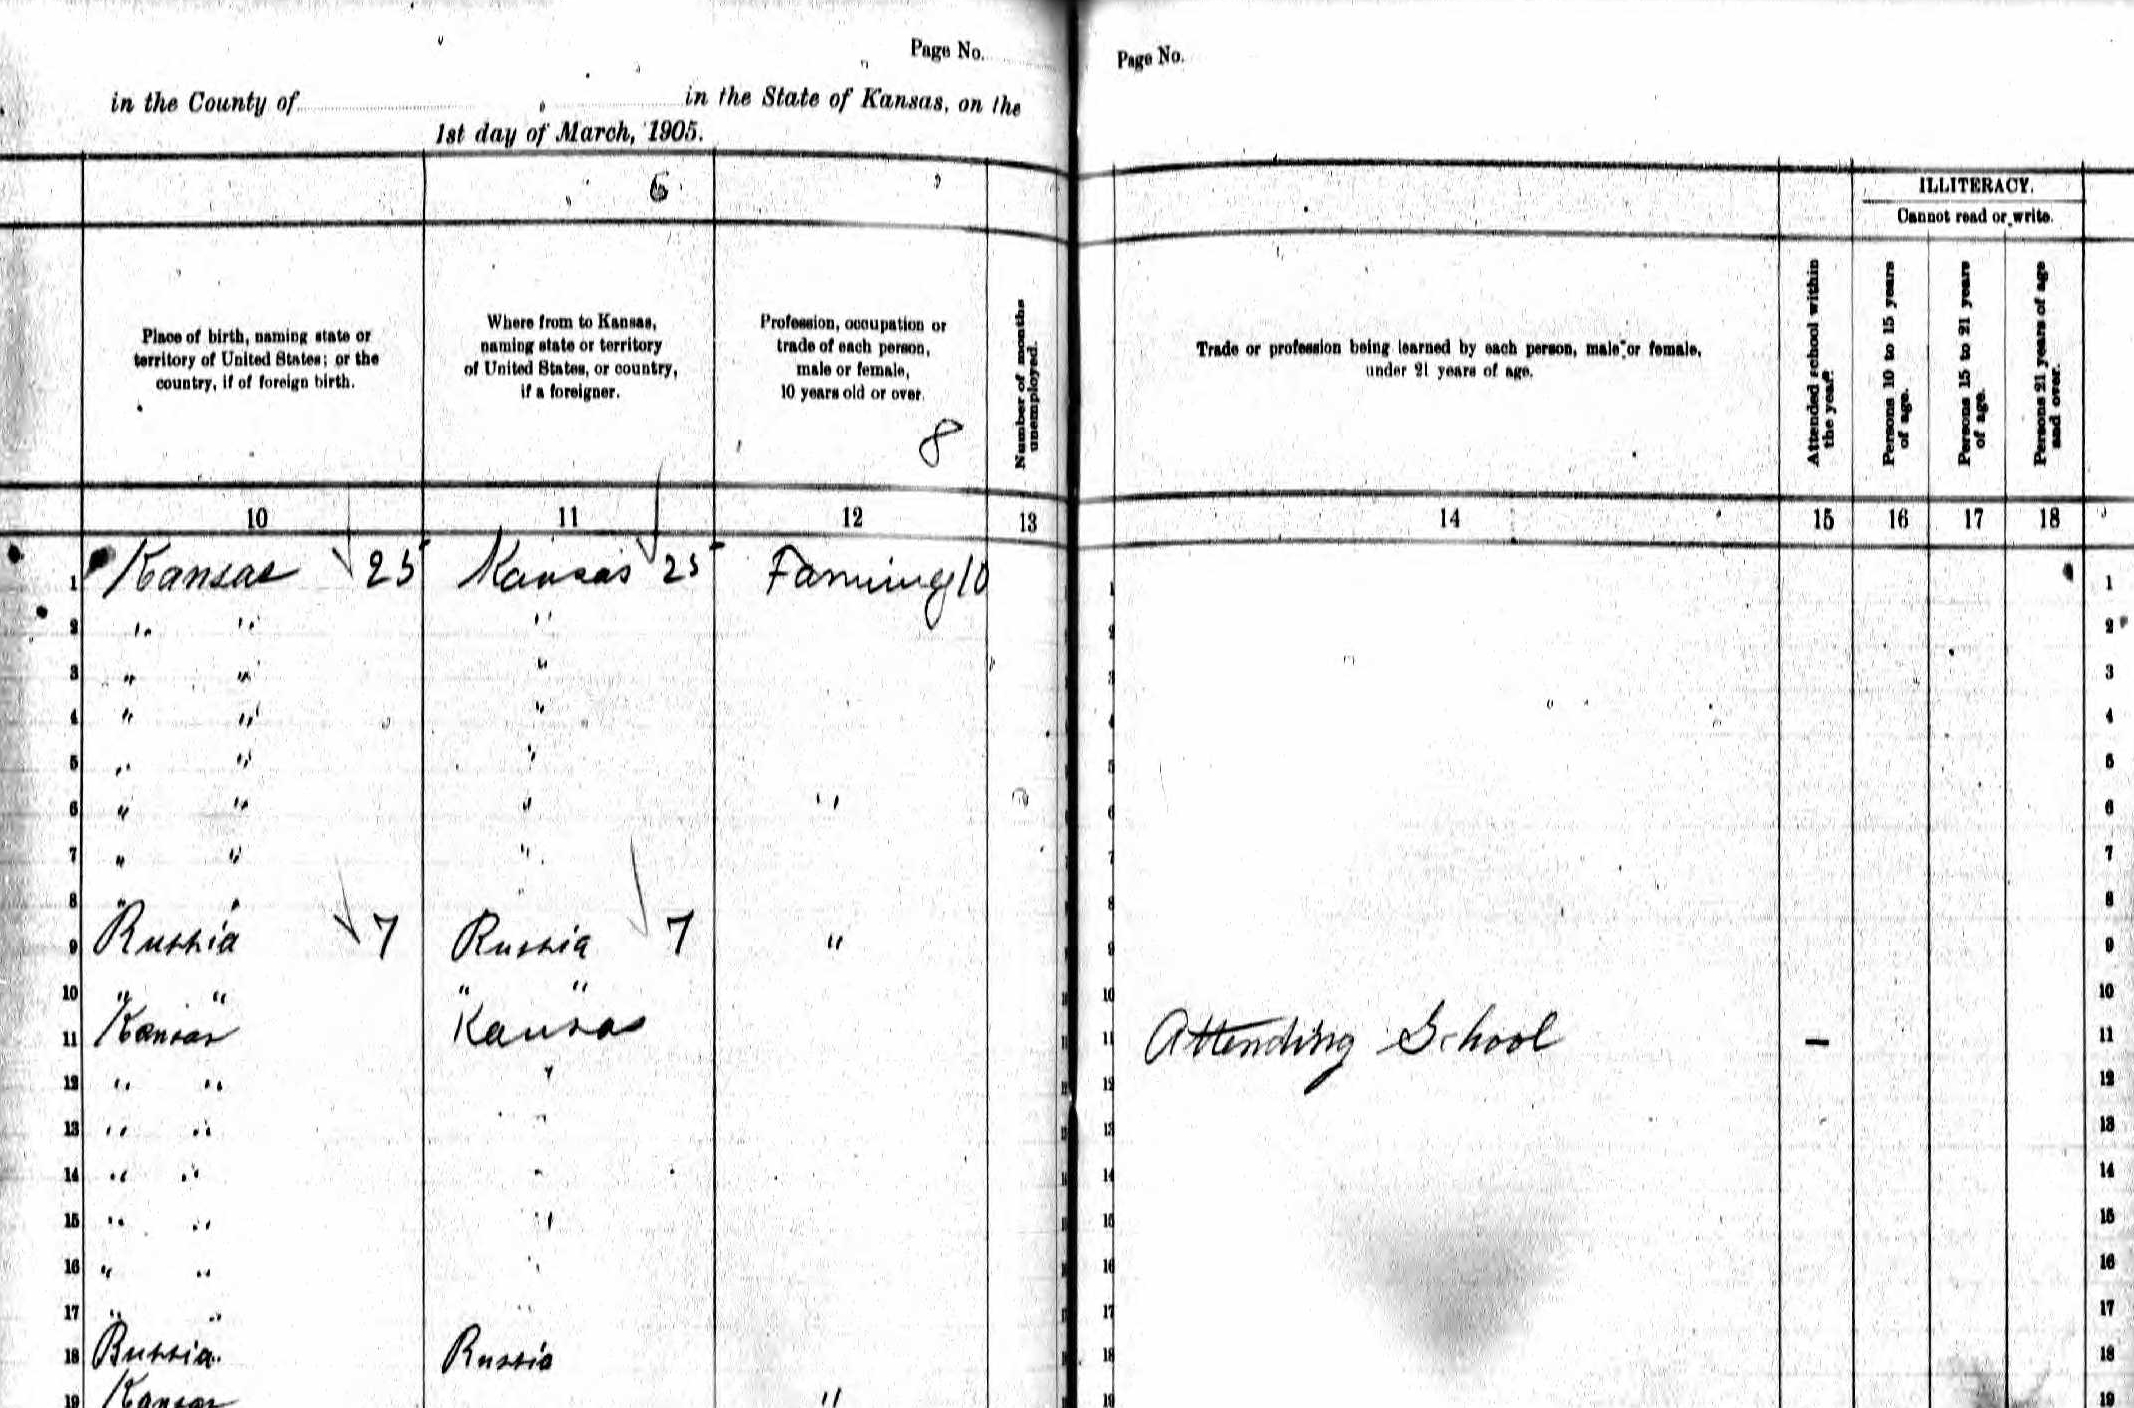 Page No.
in the County of , in the State of Kansas, on the
1st day of March, 1905.
6
Place of birth, naming state or
territory of United States; or the
country, if of foreign birth.
Where from to Kansas,
naming state or territory
of United States, or country,
if a foreigner.
Profession, occupation or
trade of each person,
male or female,
10 years old or over.
8
Number of months
unemployed.
10 11 12 13
1 Kansas 25 Kansas 25 Farming 10
2 " " "
3 " " "
4 " " "
5 " " "
6 " " " "
7 " " "
8 " " "
9 Russia 7 Russia 7 "
10 " " " "
11 Kansas Kansas
12 " " "
13 " " "
14 " " "
15 " " "
16 " " "
17 " " "
18 Russia Russia
19 Kansas "
Page No.
ILLITERACY.
Cannot read or write.
Trade or profession being learned by each person, male or female,
under 21 years of age.
Attended school within
the year.
Persons 10 to 15 years
of age.
Persons 15 to 21 years
of age.
Persons 21 years of age
and over.
14 15 16 17 18
1 1
2 2
3 3
4 4
5 5
6 6
7 7
8 8
9 9
10 10
11 Attending School – 11
12 12
13 13
14 14
15 15
16 16
17 17
18 18
19 19